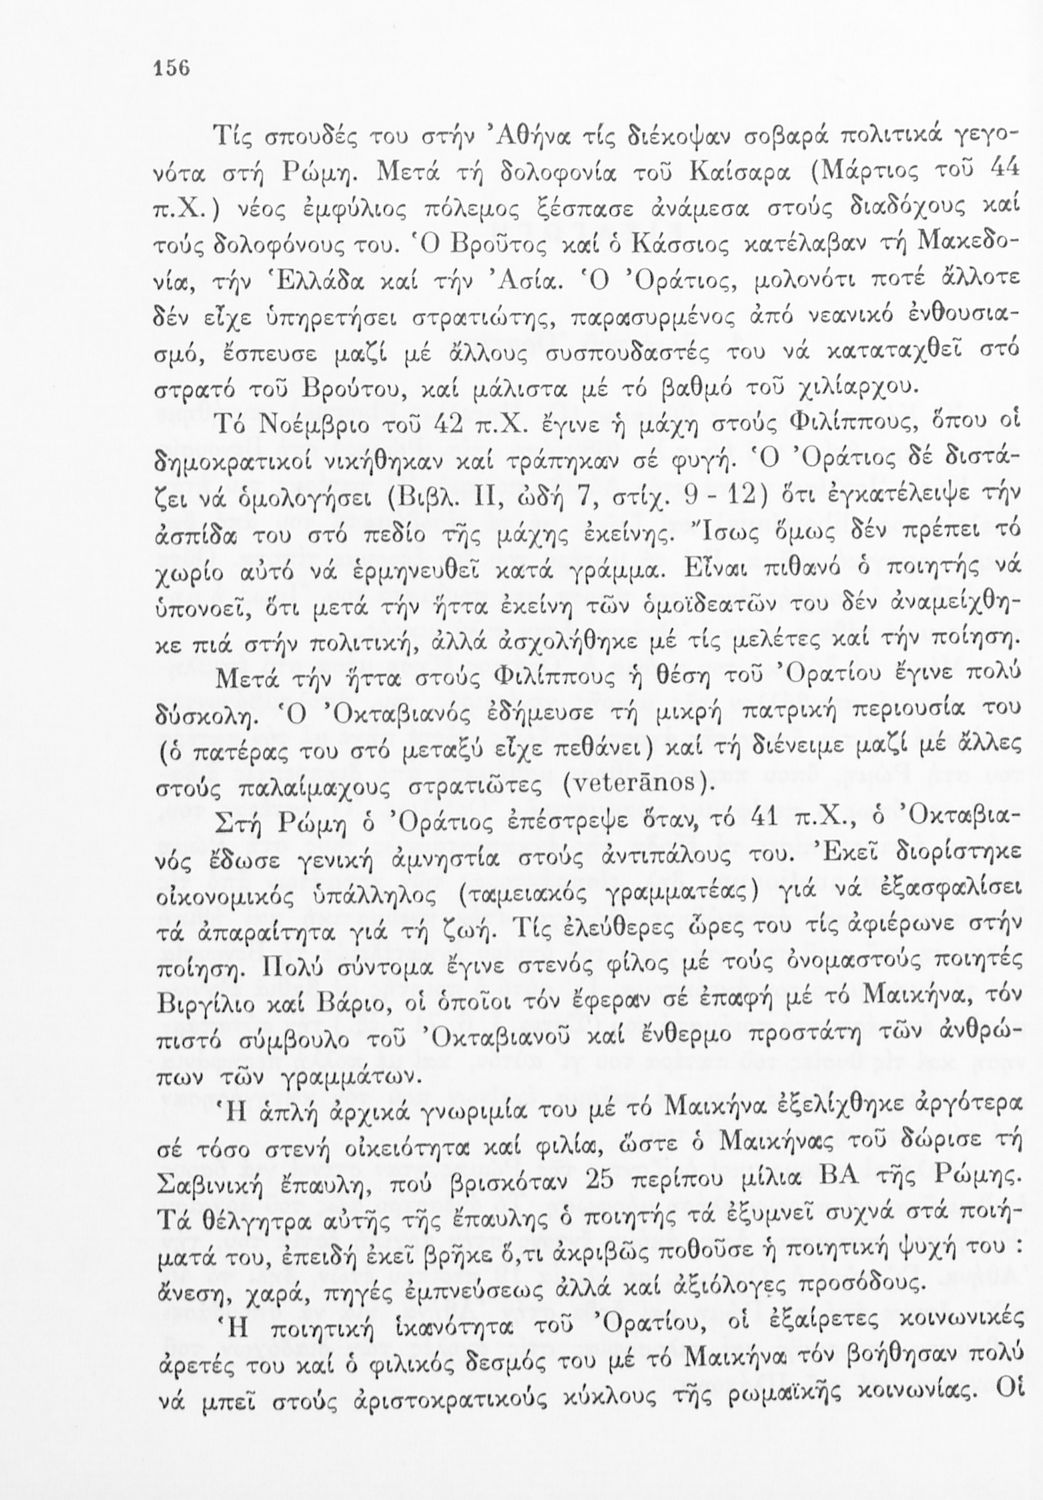 156
Τίς σπουδές του στήν Ἀθήνα τίς διέκοψαν σοβαρά πολιτικά γεγο-
νότα στή Ρώμη. Μετά τή δολοφονία τοῦ Καίσαρα (Μάρτιος τοῦ 44
π.Χ.) νέος ἐμφύλιος πόλεμος ξέσπασε ἀνάμεσα στούς διαδόχους καί
τούς δολοφόνους του. Ὁ Βροῦτος καί ὁ Κάσσιος κατέλαβαν τή Μακεδο-
νία, τήν Ἑλλάδα καί τήν Ἀσία. Ὁ Ὁράτιος, μολονότι ποτέ ἄλλοτε
δέν εἶχε ὑπηρετήσει στρατιώτης, παρασυρμένος ἀπό νεανικό ἐνθουσια-
σμό, ἔσπευσε μαζί μέ ἄλλους συσπουδαστές του νά καταταχθεῖ στό
στρατό τοῦ Βρούτου, καί μάλιστα μέ τό βαθμό τοῦ χιλίαρχου.
Τό Νοέμβριο τοῦ 42 π.Χ. ἔγινε ἡ μάχη στούς Φιλίππους, ὅπου οἱ
δημοκρατικοί νικήθηκαν καί τράπηκαν σέ φυγή. Ὁ Ὀράτιος δέ διστά-
ζει νά ὁμολογήσει (Βιβλ. ΙΙ, ὠδή 7, στίχ. 9 - 12) ὅτι ἐγκατέλειψε τήν
ἀσπίδα του στό πεδίο τῆς μάχης ἐκείνης. Ἴσως ὅμως δέν πρέπει τό
χωρίο αὐτό νά ἑρμηνευθεῖ κατά γράμμα. Εἶναι πιθανό ὁ ποιητής νά
ὑπονοεῖ, ὅτι μετά τήν ἥττα ἐκείνη τῶν ὁμοϊδεατῶν του δέν ἀναμείχθη-
κε πιά στήν πολιτική, ἀλλά ἀσχολήθηκε μέ τίς μελέτες καί τήν ποίηση.
Μετά τήν ἥττα στούς Φιλίππους ἡ θέση τοῦ Ὀρατίου ἔγινε πολύ
δύσκολη. Ὁ Ὀκταβιανός ἐδήμευσε τή μικρή πατρική περιουσία του
(ὁ πατέρας του στό μεταξύ εἶχε πεθάνει) καί τή διένειμε μαζί μέ ἄλλες
στούς παλαίμαχους στρατιῶτες (veterānos).
Στή Ρώμη ὁ Ὀράτιος ἐπέστρεψε ὅταν, τό 41 π.Χ., ὁ Ὀκταβια-
νός ἔδωσε γενική ἀμνηστία στούς ἀντιπάλους του. Ἐκεῖ διορίστηκε
οἰκονομικός ὑπάλληλος (ταμειακός γραμματέας) γιά νά ἐξασφαλίσει
τά ἀπαραίτητα γιά τή ζωή. Τίς ἐλεύθερες ὧρες του τίς ἀφιέρωνε στήν
ποίηση. Πολύ σύντομα ἔγινε στενός φίλος μέ τούς ὀνομαστούς ποιητές
Βιργίλιο καί Βάριο, οἱ ὁποῖοι τόν ἔφεραν σέ ἐπαφή μέ τό Μαικήνα, τόν
πιστό σύμβουλο τοῦ Ὀκταβιανοῦ καί ἔνθερμο προστάτη τῶν ἀνθρώ-
πων τῶν γραμμάτων.
Ἡ ἁπλή ἀρχικά γνωριμία του μέ τό Μαικήνα ἐξελίχθηκε ἀργότερα
σέ τόσο στενή οἰκειότητα καί φιλία, ὥστε ὁ Μαικήνας τοῦ δώρισε τή
Σαβινική ἔπαυλη, πού βρισκόταν 25 περίπου μίλια ΒΑ τῆς Ρώμης.
Τά θέλγητρα αὐτῆς τῆς ἔπαυλης ὁ ποιητής τά ἐξυμνεῖ συχνά στά ποιή-
ματά του, ἐπειδή ἐκεῖ βρῆκε ὅ,τι ἀκριβῶς ποθοῦσε ἡ ποιητική ψυχή του :
ἄνεση, χαρά, πηγές ἐμπνεύσεως ἀλλά καί ἀξιόλογες προσόδους.
Ἡ ποιητική ἱκανότητα τοῦ Ὀρατίου, οἱ ἐξαίρετες κοινωνικές
ἀρετές του καί ὁ φιλικός δεσμός του μέ τό Μαικήνα τόν βοήθησαν πολύ
νά μπεῖ στούς ἀριστοκρατικούς κύκλους τῆς ρωμαϊκῆς κοινωνίας. Οἱ